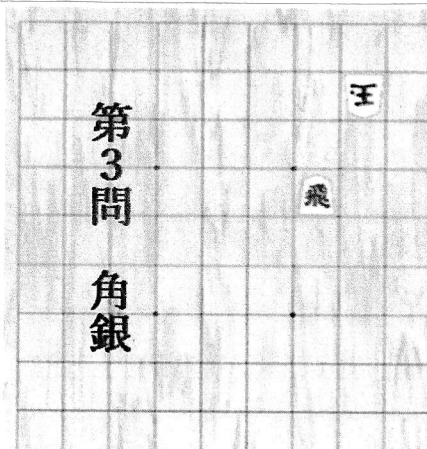 第3問 角銀
王
飛